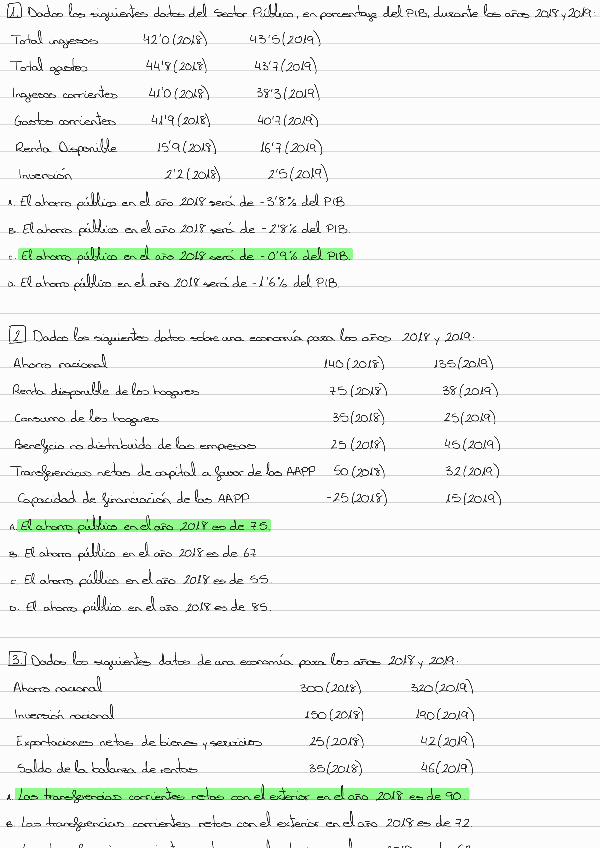 1. Dados los siguientes datos del Sector Público, en porcentaje del PIB, durante los años 2018 y 2019:
Total ingresos 42'0 (2018) 43'5 (2019)
Total gastos 44'8 (2018) 43'7 (2019)
Ingresos corrientes 41'0 (2018) 38'3 (2019)
Gastos corrientes 41'9 (2018) 40'7 (2019)
Renta Disponible 15'9 (2018) 16'7 (2019)
Inversión 2'2 (2018) 2'5 (2019)
A. El ahorro público en el año 2018 será de -3'8% del PIB
B. El ahorro público en el año 2018 será de -2'8% del PIB.
C. El ahorro público en el año 2018 será de -0'9% del PIB.
D. El ahorro público en el año 2018 será de -1'6% del PIB.
2. Dados los siguientes datos sobre una economía para los años 2018 y 2019.
Ahorro nacional 140 (2018) 135 (2019)
Renta disponible de los hogares 75 (2018) 38 (2019)
Consumo de los hogares 35 (2018) 25 (2019)
Beneficio no distribuido de las empresas 25 (2018) 45 (2019)
Transferencias netas de capital a favor de las AAPP 50 (2018) 32 (2019)
Capacidad de financiación de las AAPP -25 (2018) 15 (2019)
A. El ahorro público en el año 2018 es de 75.
B. El ahorro público en el año 2018 es de 67
C. El ahorro público en el año 2018 es de 55.
D. El ahorro público en el año 2018 es de 85.
3. Dados los siguientes datos de una economía para los años 2018 y 2019.
Ahorro nacional 300 (2018) 320 (2019)
Inversión nacional 150 (2018) 190 (2019)
Exportaciones netas de bienes y servicios 25 (2018) 42 (2019)
Saldo de la balanza de rentas 35 (2018) 46 (2019)
A. Las transferencias corrientes netas con el exterior en el año 2018 es de 90.
B. Las transferencias corrientes netas con el exterior en el año 2018 es de 72.